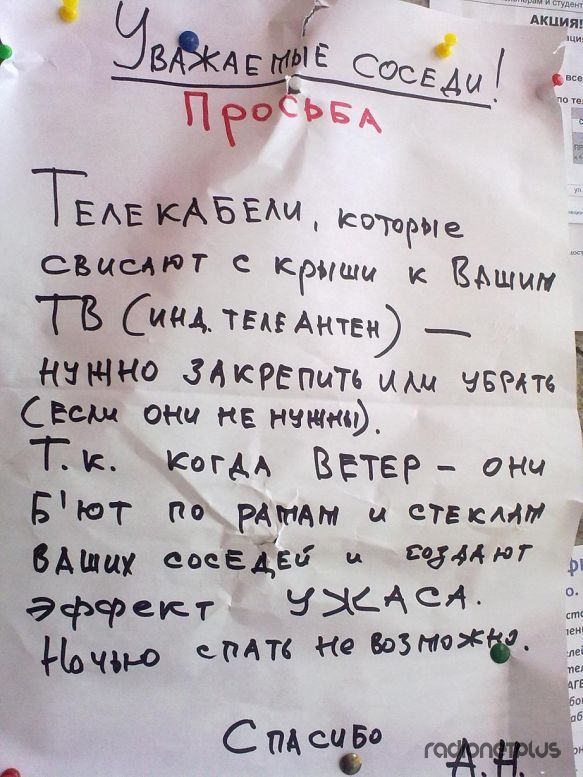 Уважаемые соседи!
Просьба
Телекабели, которые
свисают с крыши к Вашим
ТВ (инд. телеантен) —
нужно закрепить или убрать
(если они не нужны).
Т.к. когда ветер - они
б'ют по рамам и стеклам
ваших соседей и создают
эффект УЖАСА.
Ночью спать не возможно.
Спасибо
А.Н.
radionetplus
АКЦИЯ!